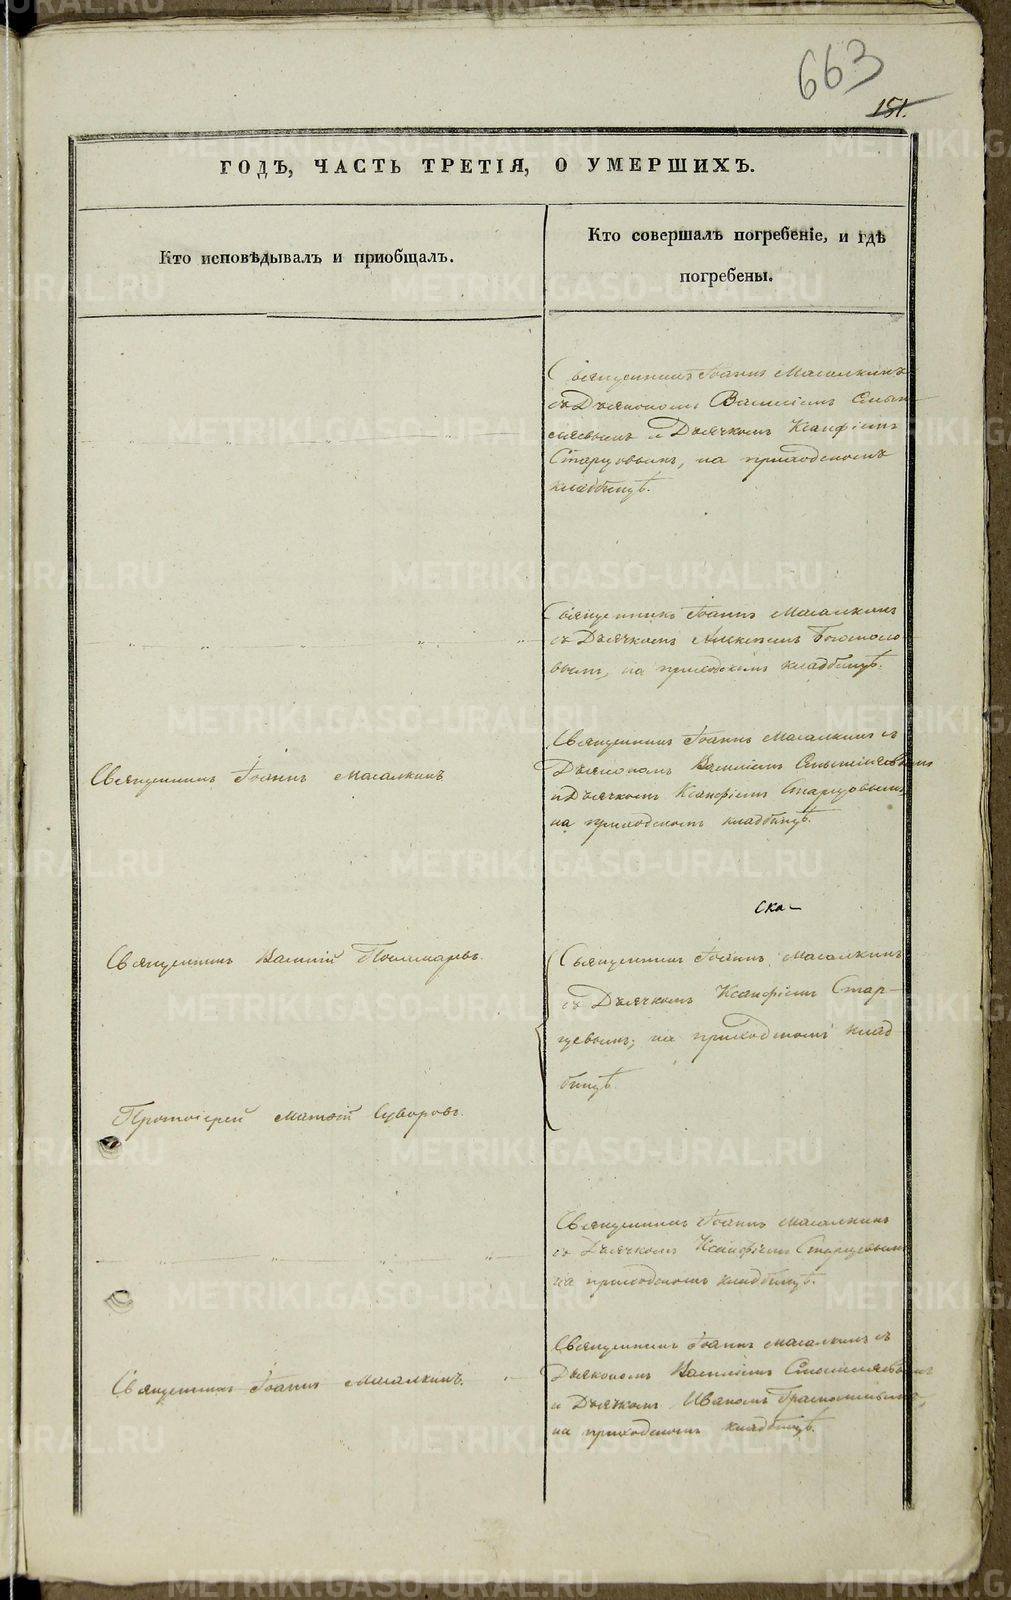 663
151.
ГОДЪ, ЧАСТЬ ТРЕТІЯ, О УМЕРШИХЪ.
Кто исповѣдывалъ и пріобщалъ.
Кто совершалъ погребеніе, и гдѣ
погребены.
Священникъ Іоаннъ Масалкинъ
съ Діакономъ Василіемъ
и Дьячкомъ Ксанфіемъ
Старцовымъ, на приходскомъ
кладбищѣ.
Священникъ Іоаннъ Масалкинъ
съ Дьячкомъ Алексѣемъ Богомоло
вымъ, на приходскомъ кладбищѣ.
Священникъ Іоаннъ Масалкинъ
Священникъ Іоаннъ Масалкинъ съ
Діакономъ Василіемъ
и Дьячкомъ Ксанфіемъ Старцовымъ,
на приходскомъ кладбищѣ.
ска-
Священникъ Пономаревъ.
Священникъ Іоаннъ Масалкинъ
съ Дьячкомъ Ксанфіемъ Стар-
цевымъ, на приходскомъ клад
бищѣ.
Протоіерей Матѳій Суворовъ.
Священникъ Іоаннъ Масалкинъ
съ Дьячкомъ Ксанфіемъ Старцовымъ
на приходскомъ кладбищѣ.
Священникъ Іоаннъ Масалкинъ.
Священникъ Іоаннъ Масалкинъ съ
Діакономъ Василіемъ
и Дьячкомъ Иваномъ
на приходскомъ кладбищѣ.
METRIKI.GASO-URAL.RU